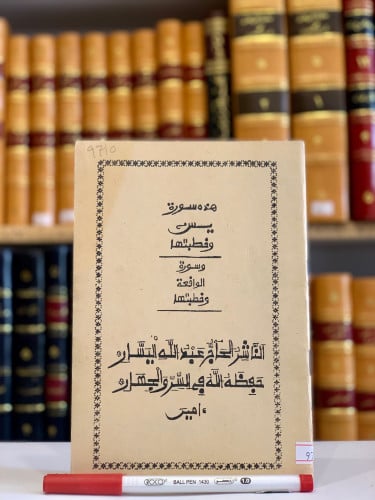 9710
هذه سورة
يس
وخطبتها
وسورة
الواقعة
وخطبتها
الناشر الحاج عبد الله اليسار
حفظه الله في السر والجهار
ءامين
97
ROCO BALL PEN .1430 1.0